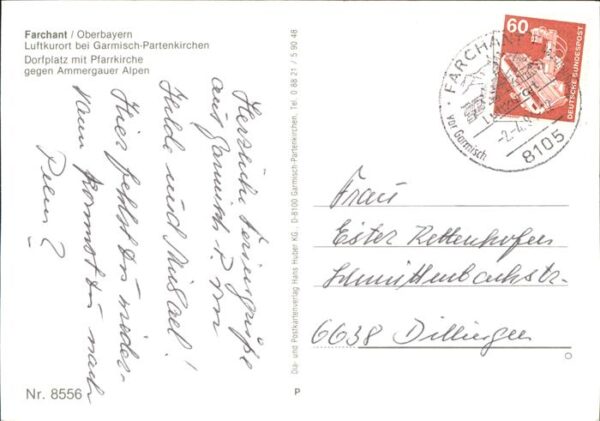 Farchant / Oberbayern
Luftkurort bei Garmisch-Partenkirchen
Dorfplatz mit Pfarrkirche
gegen Ammergauer Alpen
Herzliche Feriengrüße
aus Garmisch P. von
Hilde und Misael!
Hier fehlst Du wieder.
Wann kommst Du nach
Nr. 8556
Dia- und Postkartenverlag Hans Huber KG, D-8100 Garmisch-Partenkirchen, Tel. 0 88 21 / 5 90 48
P
60
DEUTSCHE BUNDESPOST
FARCHANT
Luftkurort
vor Garmisch
8105
Frau
Ester Rettenhofer
Schmittenbachstr.
6638 Dillingen